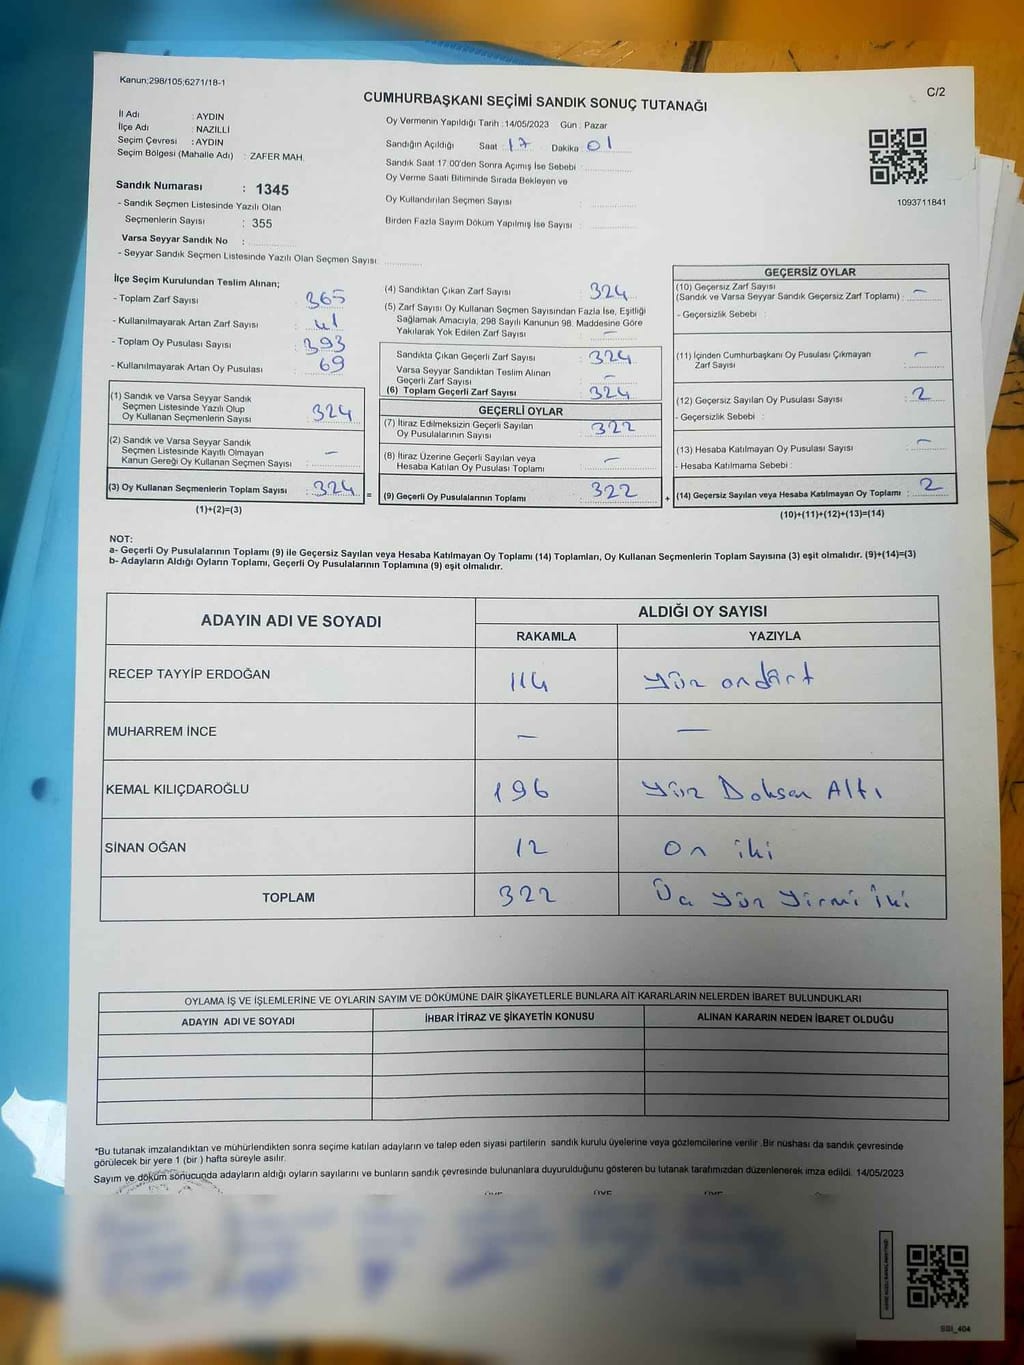 Kanun;298/105;6271/18-1
C/2
CUMHURBAŞKANI SEÇİMİ SANDIK SONUÇ TUTANAĞI
İl Adı : AYDIN
İlçe Adı : NAZİLLİ
Seçim Çevresi : AYDIN
Seçim Bölgesi (Mahalle Adı) : ZAFER MAH.
Sandık Numarası : 1345
- Sandık Seçmen Listesinde Yazılı Olan
Seçmenlerin Sayısı : 355
Varsa Seyyar Sandık No :
- Seyyar Sandık Seçmen Listesinde Yazılı Olan Seçmen Sayısı
Oy Vermenin Yapıldığı Tarih :14/05/2023 Gün : Pazar
Sandığın Açıldığı Saat : 17 Dakika 01
Sandık Saat 17.00'den Sonra Açımış İse Sebebi :
Oy Verme Saati Bitiminde Sırada Bekleyen ve
Oy Kullandırılan Seçmen Sayısı :
Birden Fazla Sayım Döküm Yapılmış İse Sayısı :
1093711841
İlçe Seçim Kurulundan Teslim Alınan;
- Toplam Zarf Sayısı : 365
- Kullanılmayarak Artan Zarf Sayısı : 41
- Toplam Oy Pusulası Sayısı : 393
- Kullanılmayarak Artan Oy Pusulası : 69
(1) Sandık ve Varsa Seyyar Sandık
Seçmen Listesinde Yazılı Olup
Oy Kullanan Seçmenlerin Sayısı : 324
(2) Sandık ve Varsa Seyyar Sandık
Seçmen Listesinde Kayıtlı Olmayan
Kanun Gereği Oy Kullanan Seçmen Sayısı : —
(3) Oy Kullanan Seçmenlerin Toplam Sayısı : 324 =
(1)+(2)=(3)
(4) Sandıktan Çıkan Zarf Sayısı : 324
(5) Zarf Sayısı Oy Kullanan Seçmen Sayısından Fazla İse, Eşitliği
Sağlamak Amacıyla, 298 Sayılı Kanunun 98. Maddesine Göre
Yakılarak Yok Edilen Zarf Sayısı : —
Sandıkta Çıkan Geçerli Zarf Sayısı : 324
Varsa Seyyar Sandıktan Teslim Alınan
Geçerli Zarf Sayısı : —
(6) Toplam Geçerli Zarf Sayısı : 324
GEÇERLİ OYLAR
(7) İtiraz Edilmeksizin Geçerli Sayılan
Oy Pusulalarının Sayısı : 322
(8) İtiraz Üzerine Geçerli Sayılan veya
Hesaba Katılan Oy Pusulası Toplamı : —
(9) Geçerli Oy Pusulalarının Toplamı : 322 +
GEÇERSİZ OYLAR
(10) Geçersiz Zarf Sayısı
(Sandık ve Varsa Seyyar Sandık Geçersiz Zarf Toplamı) : —
- Geçersizlik Sebebi :
(11) İçinden Cumhurbaşkanı Oy Pusulası Çıkmayan
Zarf Sayısı : —
(12) Geçersiz Sayılan Oy Pusulası Sayısı : 2
- Geçersizlik Sebebi :
(13) Hesaba Katılmayan Oy Pusulası Sayısı : —
- Hesaba Katılmama Sebebi :
(14) Geçersiz Sayılan veya Hesaba Katılmayan Oy Toplamı : 2
(10)+(11)+(12)+(13)=(14)
NOT:
a- Geçerli Oy Pusulalarının Toplamı (9) ile Geçersiz Sayılan veya Hesaba Katılmayan Oy Toplamı (14) Toplamları, Oy Kullanan Seçmenlerin Toplam Sayısına (3) eşit olmalıdır. (9)+(14)=(3)
b- Adayların Aldığı Oyların Toplamı, Geçerli Oy Pusulalarının Toplamına (9) eşit olmalıdır.
ADAYIN ADI VE SOYADI ALDIĞI OY SAYISI
RAKAMLA YAZIYLA
RECEP TAYYİP ERDOĞAN 114 yüz ondört
MUHARREM İNCE — —
KEMAL KILIÇDAROĞLU 196 yüz Doksan Altı
SİNAN OĞAN 12 On iki
TOPLAM 322 Üç yüz yirmi iki
OYLAMA İŞ VE İŞLEMLERİNE VE OYLARIN SAYIM VE DÖKÜMÜNE DAİR ŞİKAYETLERLE BUNLARA AİT KARARLARIN NELERDEN İBARET BULUNDUKLARI
ADAYIN ADI VE SOYADI İHBAR İTİRAZ VE ŞİKAYETİN KONUSU ALINAN KARARIN NEDEN İBARET OLDUĞU
*Bu tutanak imzalandıktan ve mühürlendikten sonra seçime katılan adayların ve talep eden siyasi partilerin sandık kurulu üyelerine veya gözlemcilerine verilir .Bir nüshası da sandık çevresinde
görülecek bir yere 1 (bir ) hafta süreyle asılır.
Sayım ve döküm sonucunda adayların aldığı oyların sayılarını ve bunların sandık çevresinde bulunanlara duyurulduğunu gösteren bu tutanak tarafımızdan düzenlenerek imza edildi. 14/05/2023
SSI_404